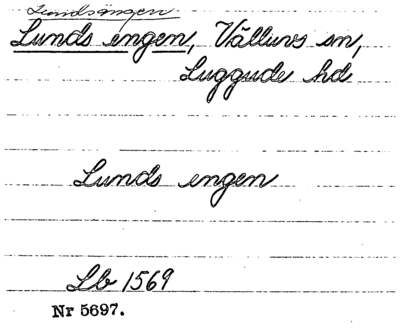 Lundsängen
Lunds engen, Välluvs sn,
Luggude hd
Lunds engen
Lb 1569
Nr 5697.